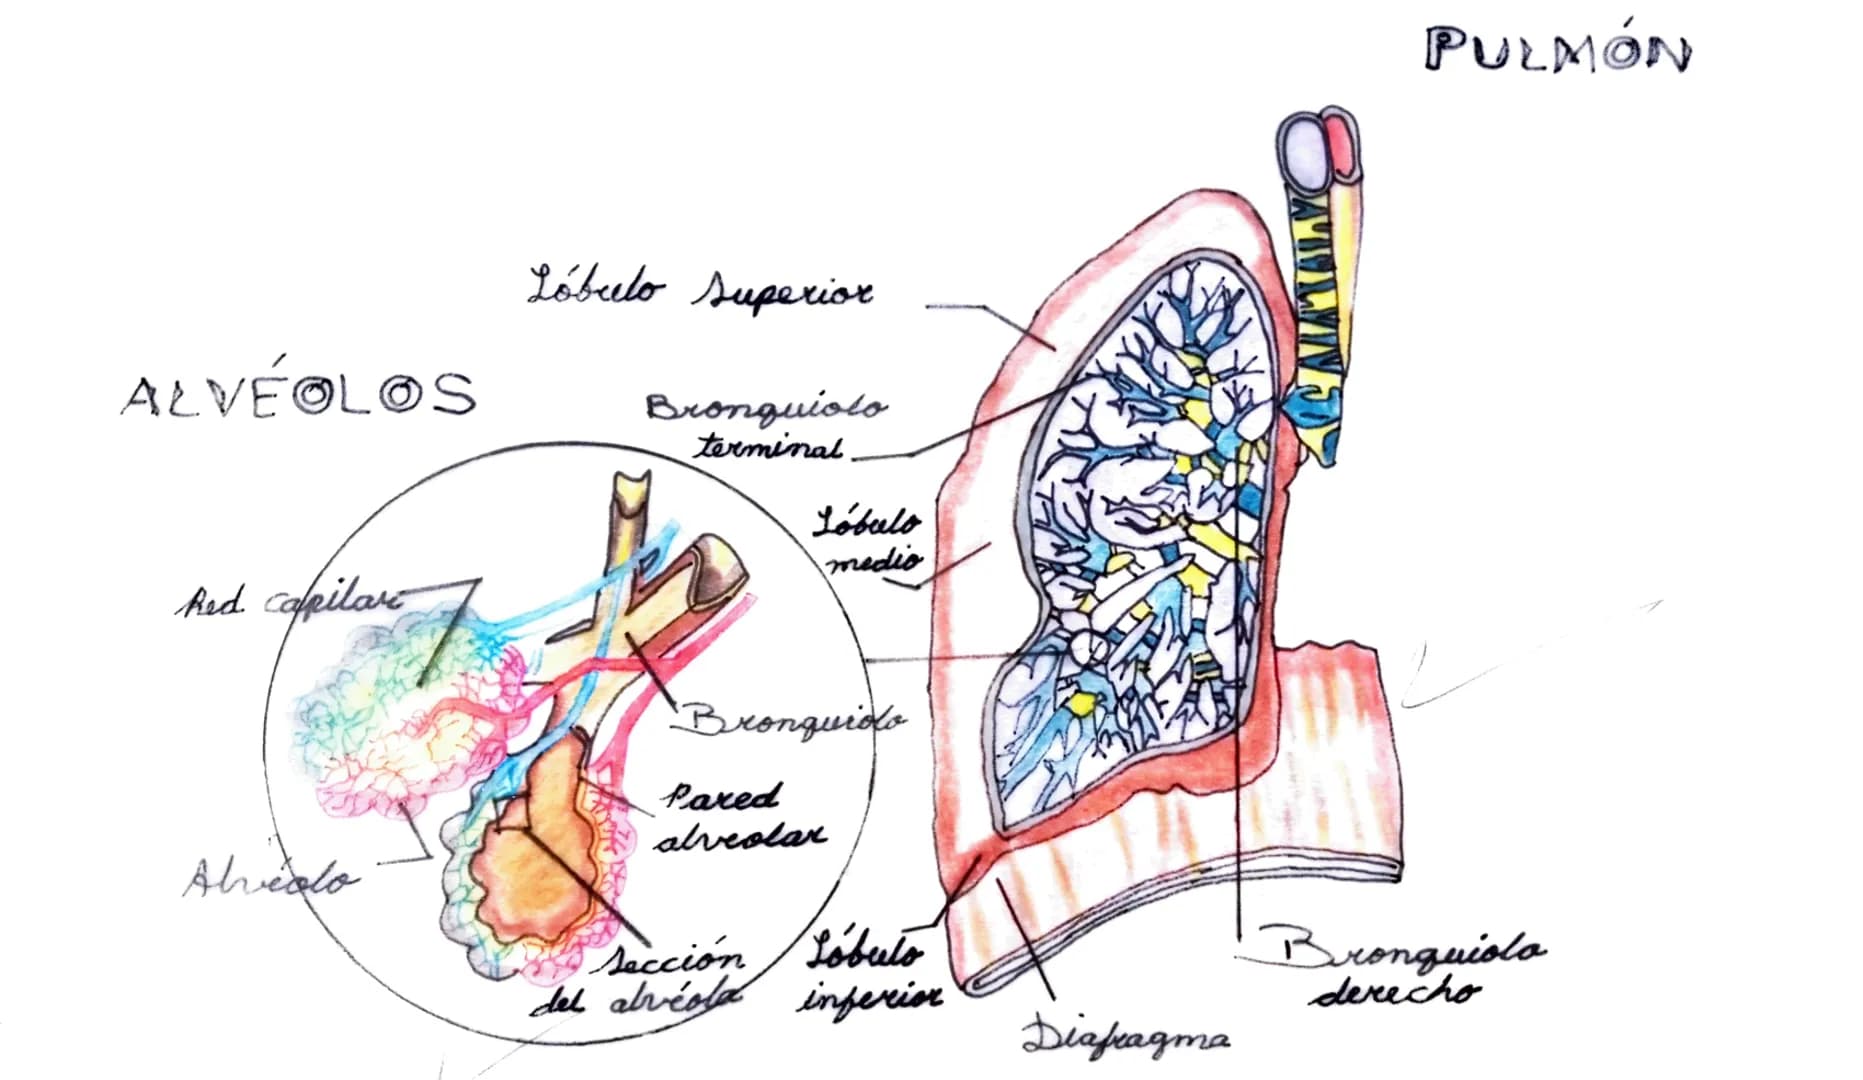 PULMÓN
Lóbulo Superior
ALVÉOLOS
Bronquiolo
terminal
Lóbulo
medio
Red capilar
Bronquiolo
Pared
alveolar
Alvéolo
Sección
del alvéolo
Lóbulo
inferior
Bronquiolo
derecho
Diafragma